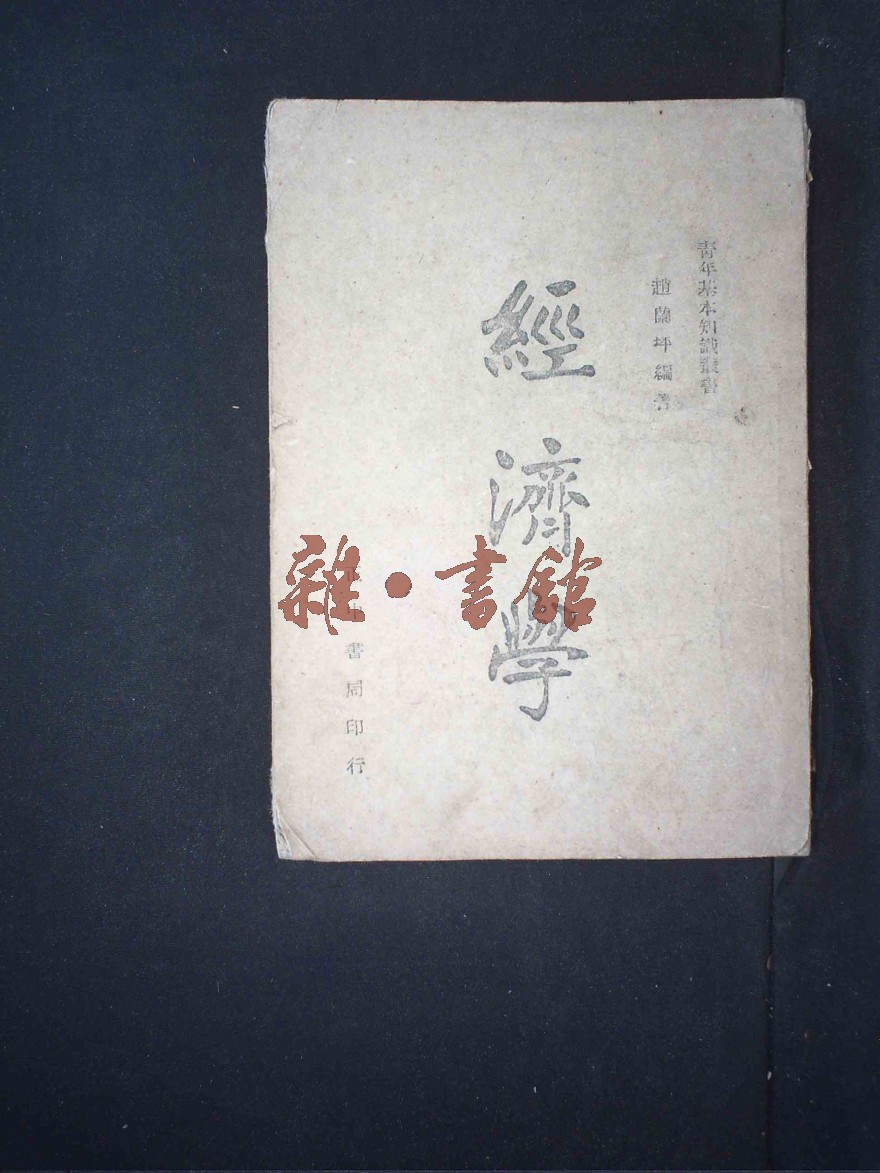 青年基本知識叢書
趙蘭坪編著
經濟學
書局印行
雜·書館